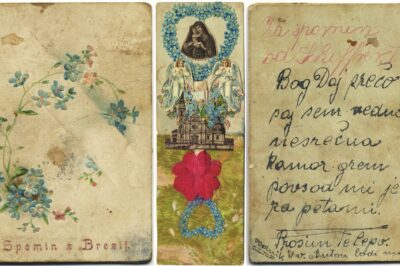 Spomin z Brezij
Za spomin
od
Bog Daj srečo
saj sem vedno
nesrečna
kamor grem
povsod mi je
za petami.
Prosim Te lepo.
Sv. Anton